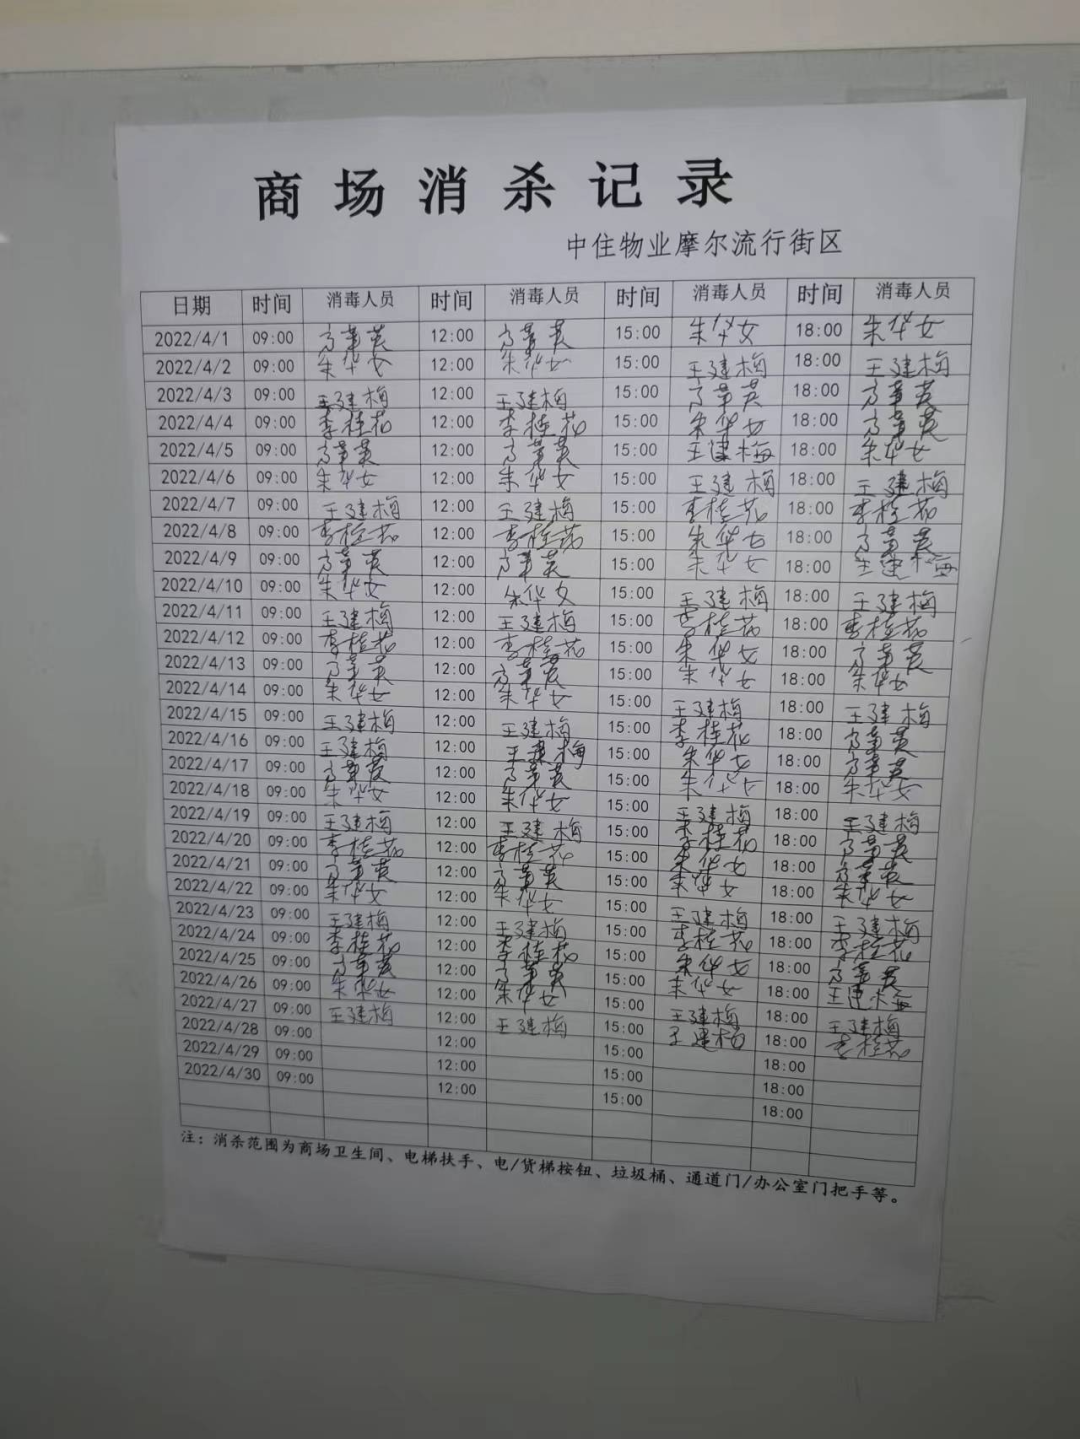 商场消杀记录
中住物业摩尔流行街区
日期 时间 消毒人员 时间 消毒人员 时间 消毒人员 时间 消毒人员
2022/4/1 09:00 12:00 15:00 朱华女 18:00 朱华女
2022/4/2 09:00 朱华女 12:00 朱华女 15:00 王建梅 18:00 王建梅
2022/4/3 09:00 王建梅 12:00 王建梅 15:00 18:00
2022/4/4 09:00 李桂花 12:00 李桂花 15:00 朱华女 18:00
2022/4/5 09:00 12:00 15:00 王建梅 18:00 朱华女
2022/4/6 09:00 朱华女 12:00 朱华女 15:00 王建梅 18:00 王建梅
2022/4/7 09:00 王建梅 12:00 王建梅 15:00 李桂花 18:00 李桂花
2022/4/8 09:00 李桂花 12:00 李桂花 15:00 朱华女 18:00
2022/4/9 09:00 12:00 15:00 朱华女 18:00 王建梅
2022/4/10 09:00 朱华女 12:00 朱华女 15:00 王建梅 18:00 王建梅
2022/4/11 09:00 王建梅 12:00 王建梅 15:00 李桂花 18:00 李桂花
2022/4/12 09:00 李桂花 12:00 李桂花 15:00 朱华女 18:00
2022/4/13 09:00 12:00 15:00 朱华女 18:00 朱华女
2022/4/14 09:00 朱华女 12:00 朱华女 15:00 王建梅 18:00 王建梅
2022/4/15 09:00 王建梅 12:00 王建梅 15:00 李桂花 18:00
2022/4/16 09:00 王建梅 12:00 王建梅 15:00 朱华女 18:00
2022/4/17 09:00 12:00 15:00 朱华女 18:00 朱华女
2022/4/18 09:00 朱华女 12:00 朱华女 15:00 王建梅 18:00 王建梅
2022/4/19 09:00 王建梅 12:00 王建梅 15:00 李桂花 18:00
2022/4/20 09:00 李桂花 12:00 李桂花 15:00 朱华女 18:00
2022/4/21 09:00 12:00 15:00 朱华女 18:00 朱华女
2022/4/22 09:00 朱华女 12:00 朱华女 15:00 王建梅 18:00 王建梅
2022/4/23 09:00 王建梅 12:00 王建梅 15:00 李桂花 18:00 李桂花
2022/4/24 09:00 李桂花 12:00 李桂花 15:00 朱华女 18:00
2022/4/25 09:00 12:00 15:00 朱华女 18:00 王建梅
2022/4/26 09:00 朱华女 12:00 朱华女 15:00 王建梅 18:00 王建梅
2022/4/27 09:00 王建梅 12:00 王建梅 15:00 王建梅 18:00 李桂花
2022/4/28 09:00 12:00 15:00 18:00
2022/4/29 09:00 12:00 15:00 18:00
2022/4/30 09:00 12:00 15:00 18:00
注：消杀范围为商场卫生间、电梯扶手、电/货梯按钮、垃圾桶、通道门/办公室门把手等。